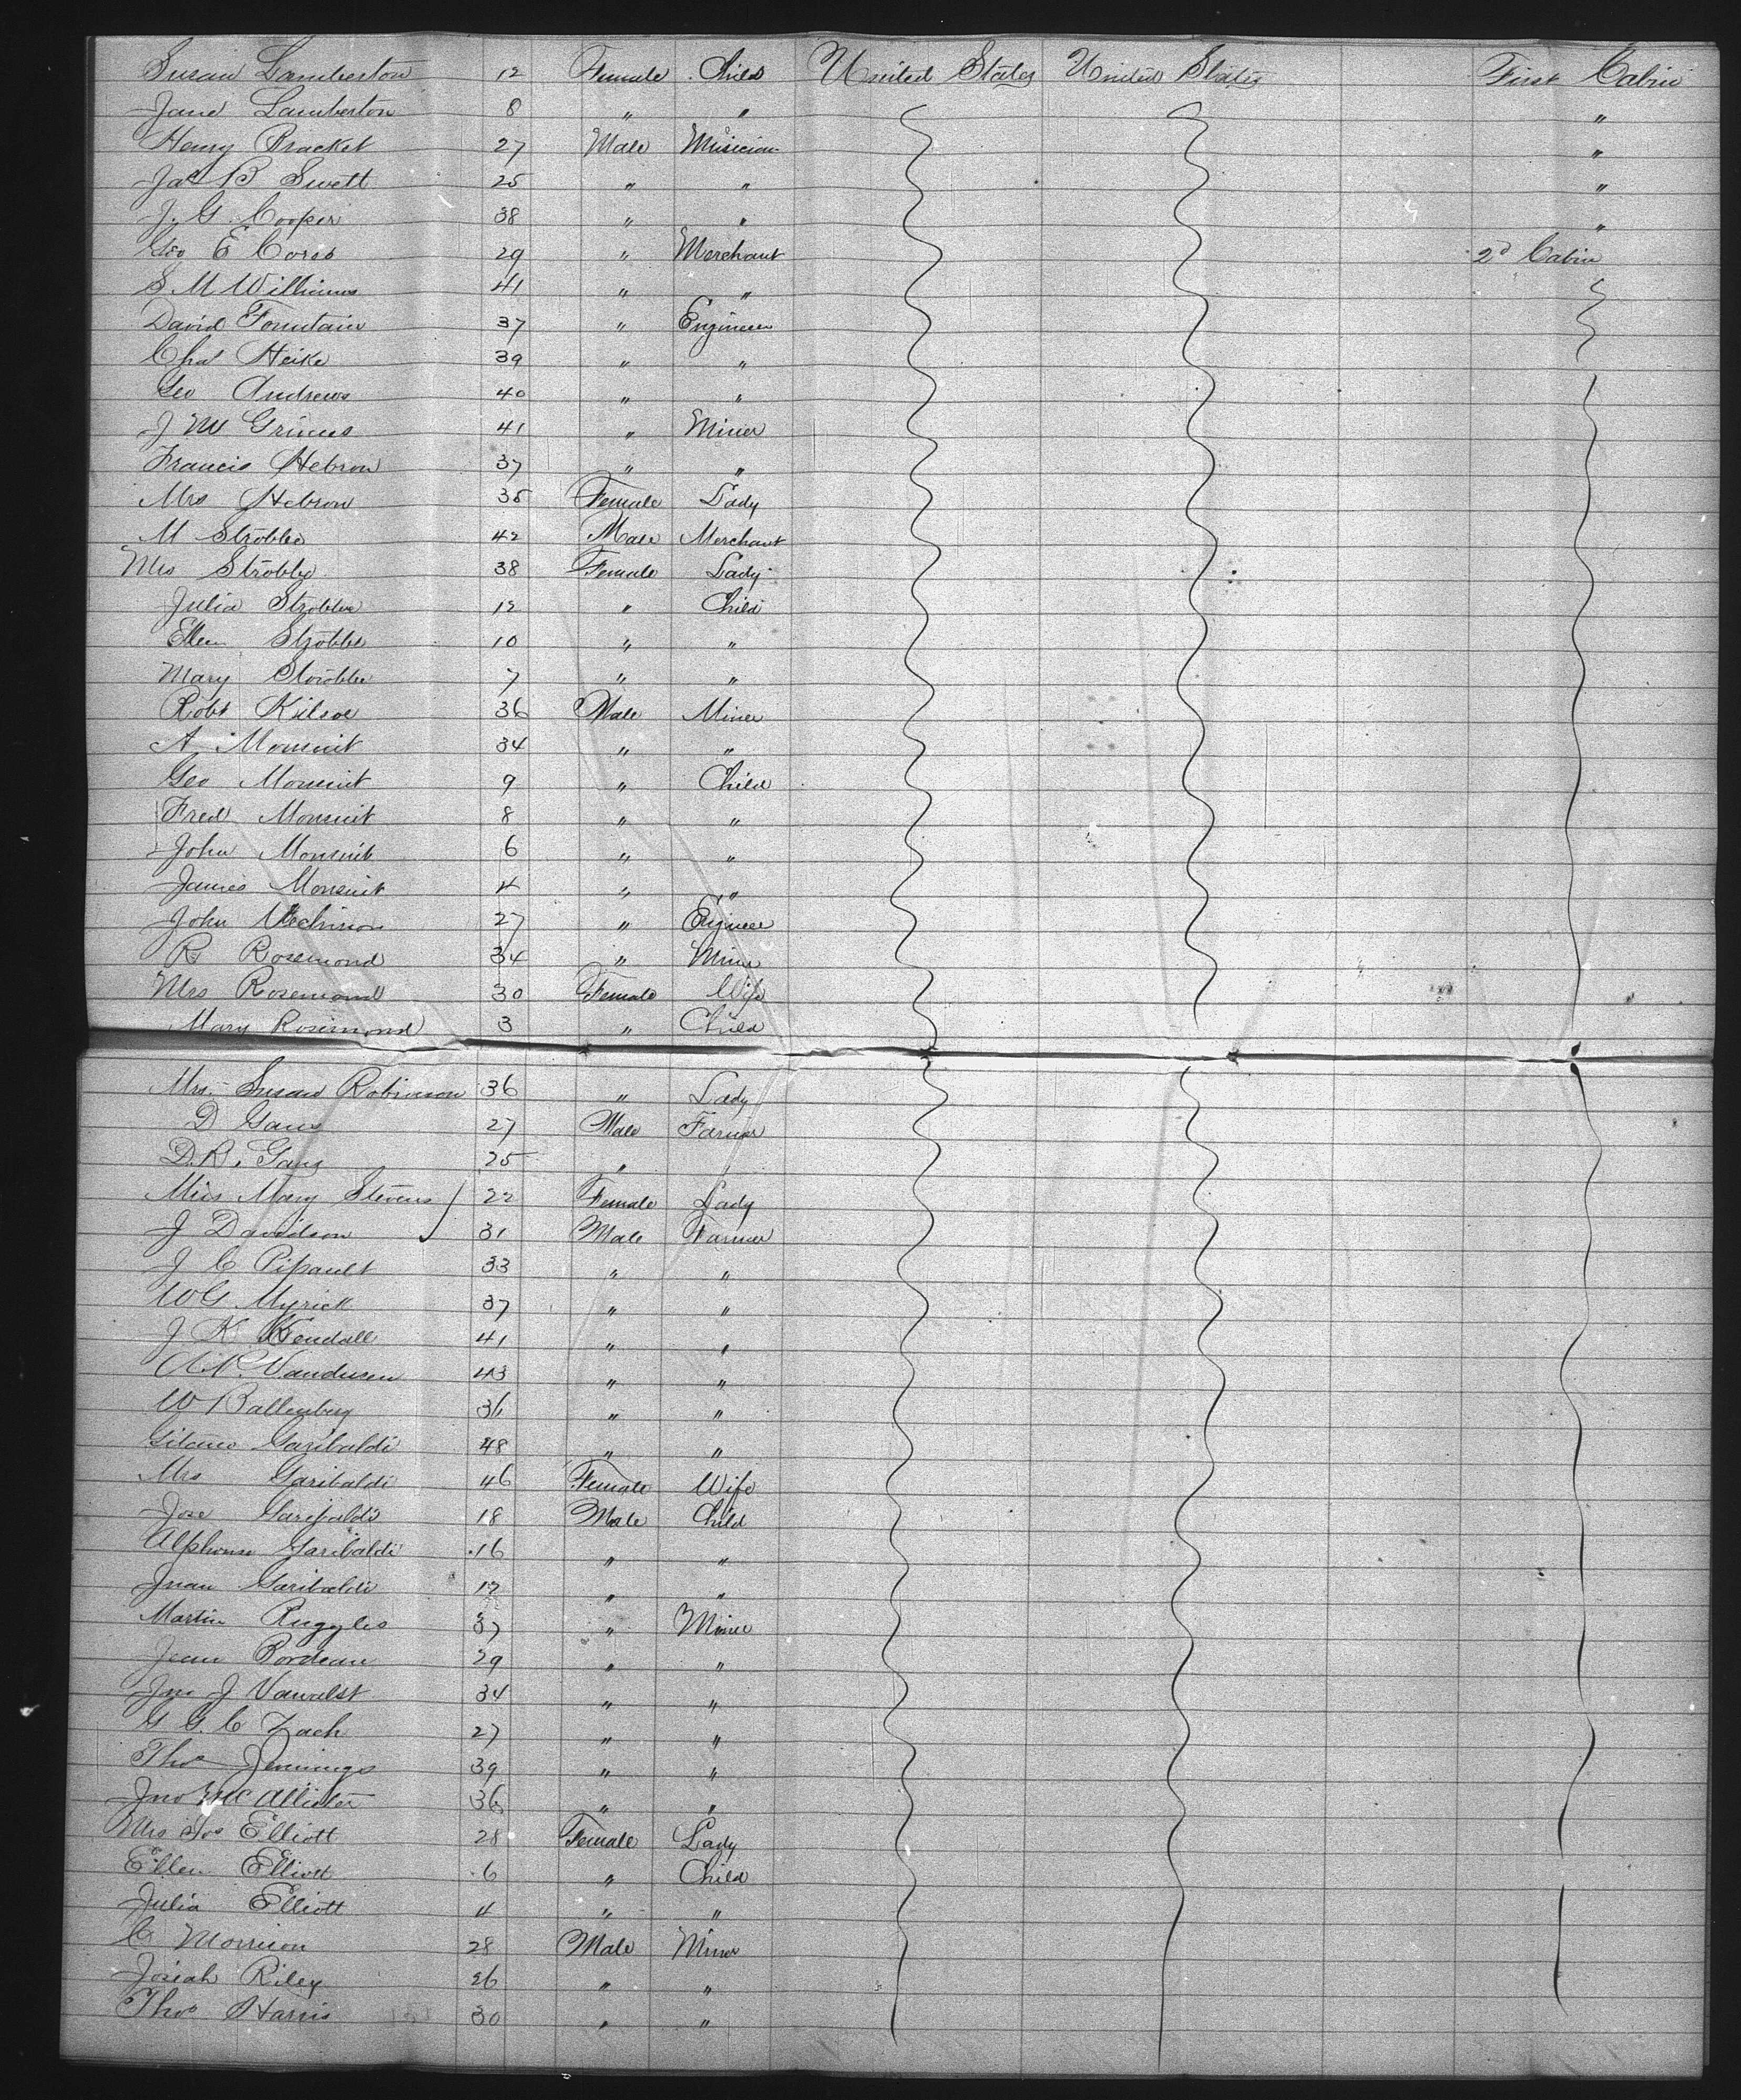 Susan Lamberton 12 Female Child United States United States First Cabin
Jane Lamberton 8 " " "
Henry Bracket 27 Male Musician "
Jas B Swett 25 " " "
J. G. Cooper 38 " " "
Geo E Corss 29 " Merchant 2d Cabin
S M Williams 41 " "
David Fountain 37 " Engineer
Chas Heike 39 " "
Geo Andrews 40 " "
J M Grimes 41 " Miner
Francis Hebron 37 " "
Mrs Hebron 35 Female Lady
M Strobble 42 Male Merchant
Mrs Strobble 38 Female Lady
Julia Strobble 12 " Child
Ellen Strobble 10 " "
Mary Strobble 7 " "
Robt Kilsoe 36 Male Miner
A Monsuit 34 " "
Geo Monsuit 9 " Child
Fred Monsuit 8 " "
John Monsuit 6 " "
James Monsuit 4 " "
John 27 " Engineer
R Rosemond 34 " Miner
Mrs Rosemond 30 Female Wife
Mary Rosemond 3 " Child
Mrs. Susan Robinson 36 " Lady
D Gans 27 Male Farmer
D. R. Gans 25 "
Miss Mary Stevens 22 Female Lady
J Davidson 31 Male Farmer
J C Pipault 33 " "
W G Myrick 37 " "
J K Kendall 41 " "
Vandusen 43 " "
W Ballenberg 36 " "
Gitano Garibaldi 48 " "
Mrs Garibaldi 46 Female Wife
Jose Garibaldi 18 Male Child
Alphonse Garibaldi 16 " "
Juan Garibaldi 12 " "
Martin Ruggles 37 " Miner
Jean Bordeau 29 " "
Jno J Vanalst 34 " "
G G. C Zach 27 " "
Thos Jennings 39 " "
Jno McAllister 36 " "
Mrs Jos Elliott 28 Female Lady
Ellen Elliott 6 " Child
Julia Elliott 4 " "
C Morrison 28 Male Miner
Josiah Riley 26 " "
Thos Harris 30 " "